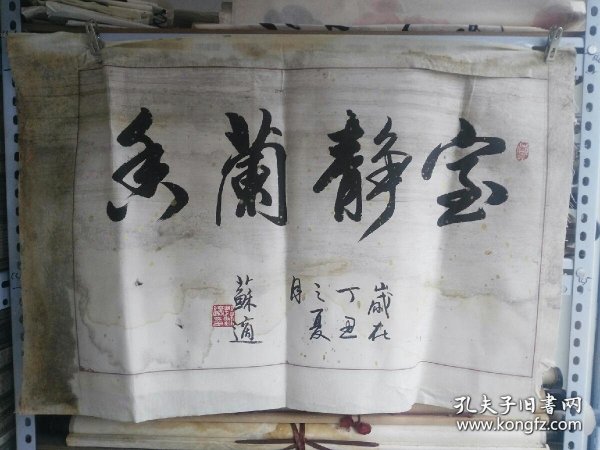 室静蘭香
歲在
丁丑
之夏
月
蘇適
孔夫子旧書网
www.kongfz.com